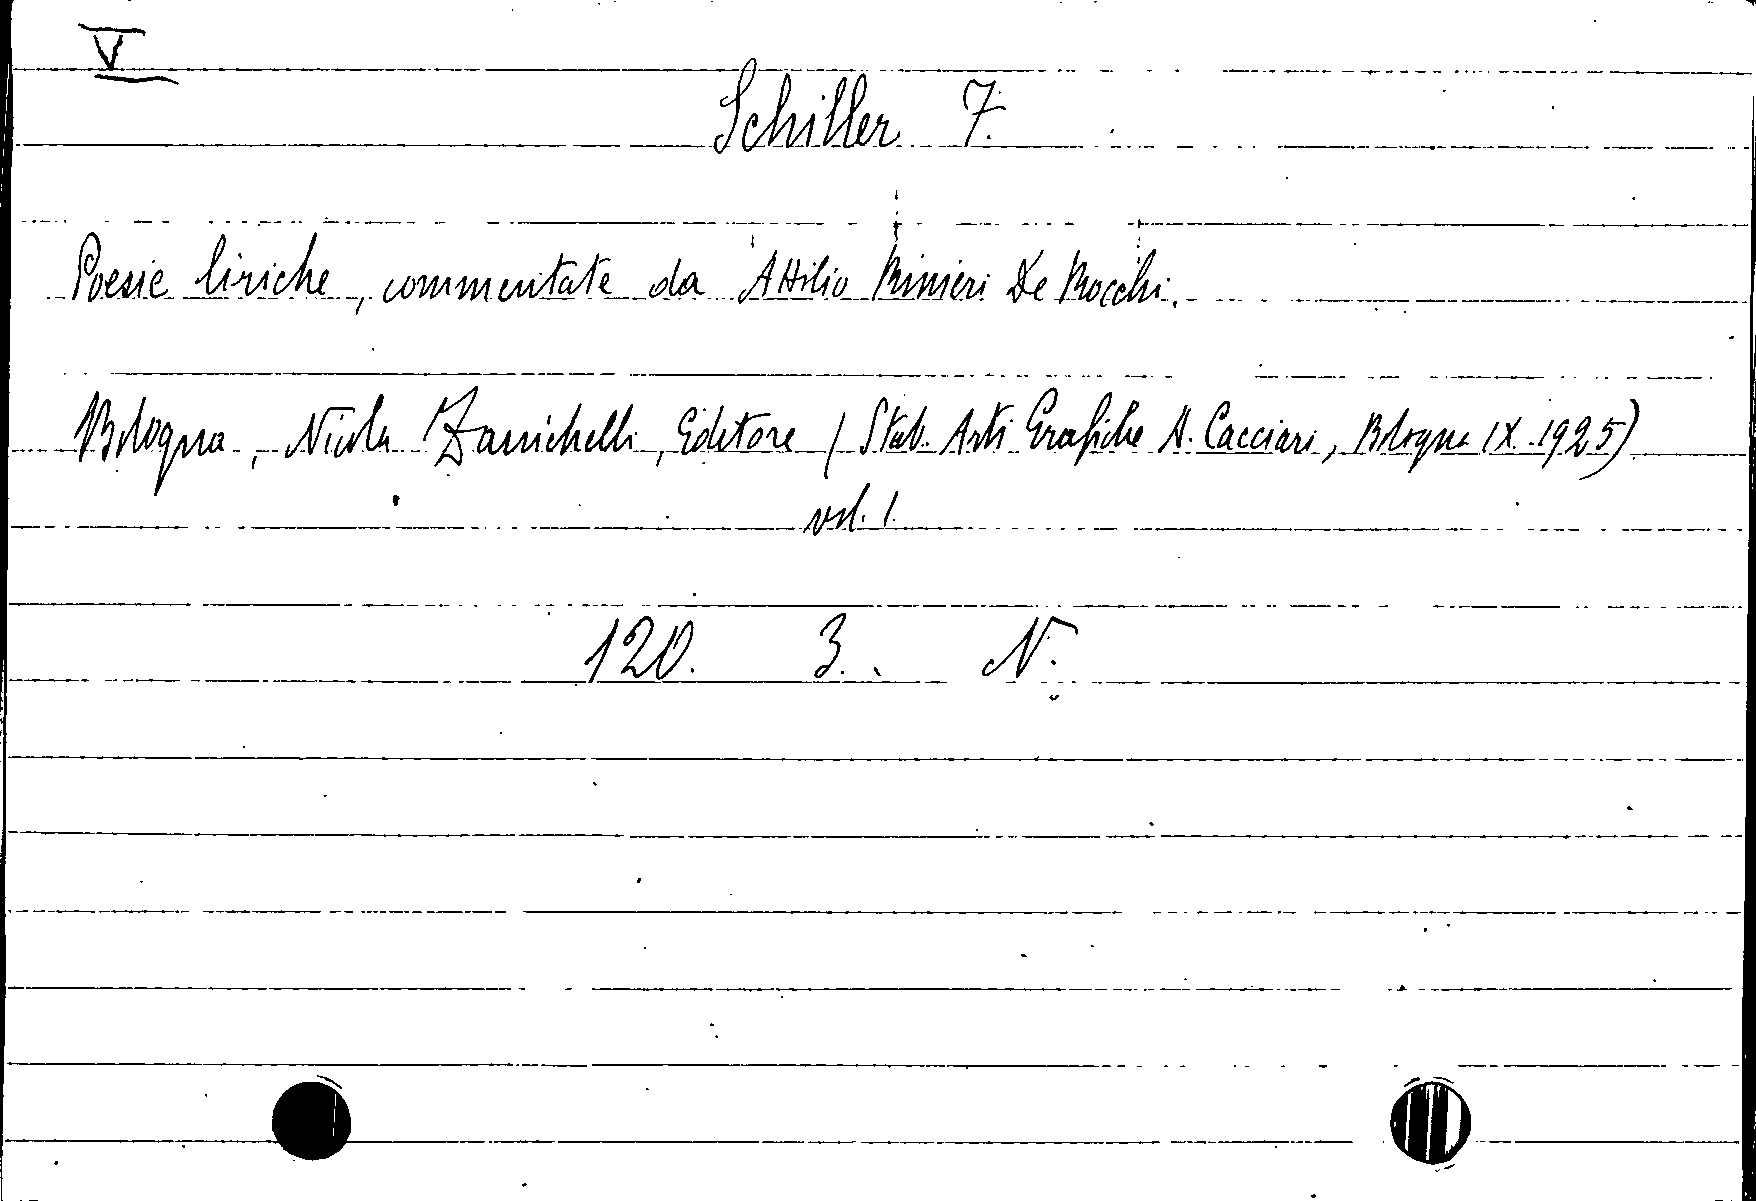 V
Schiller F.
Poesie liriche, commentate da Attilio Rinieri De Rocchi.
Bologna, Nicola Zanichelli, Editore (Stab. Arti Grafiche A. Cacciari, Bologna IX. 1925)
vol. 1.
120. 3. N.